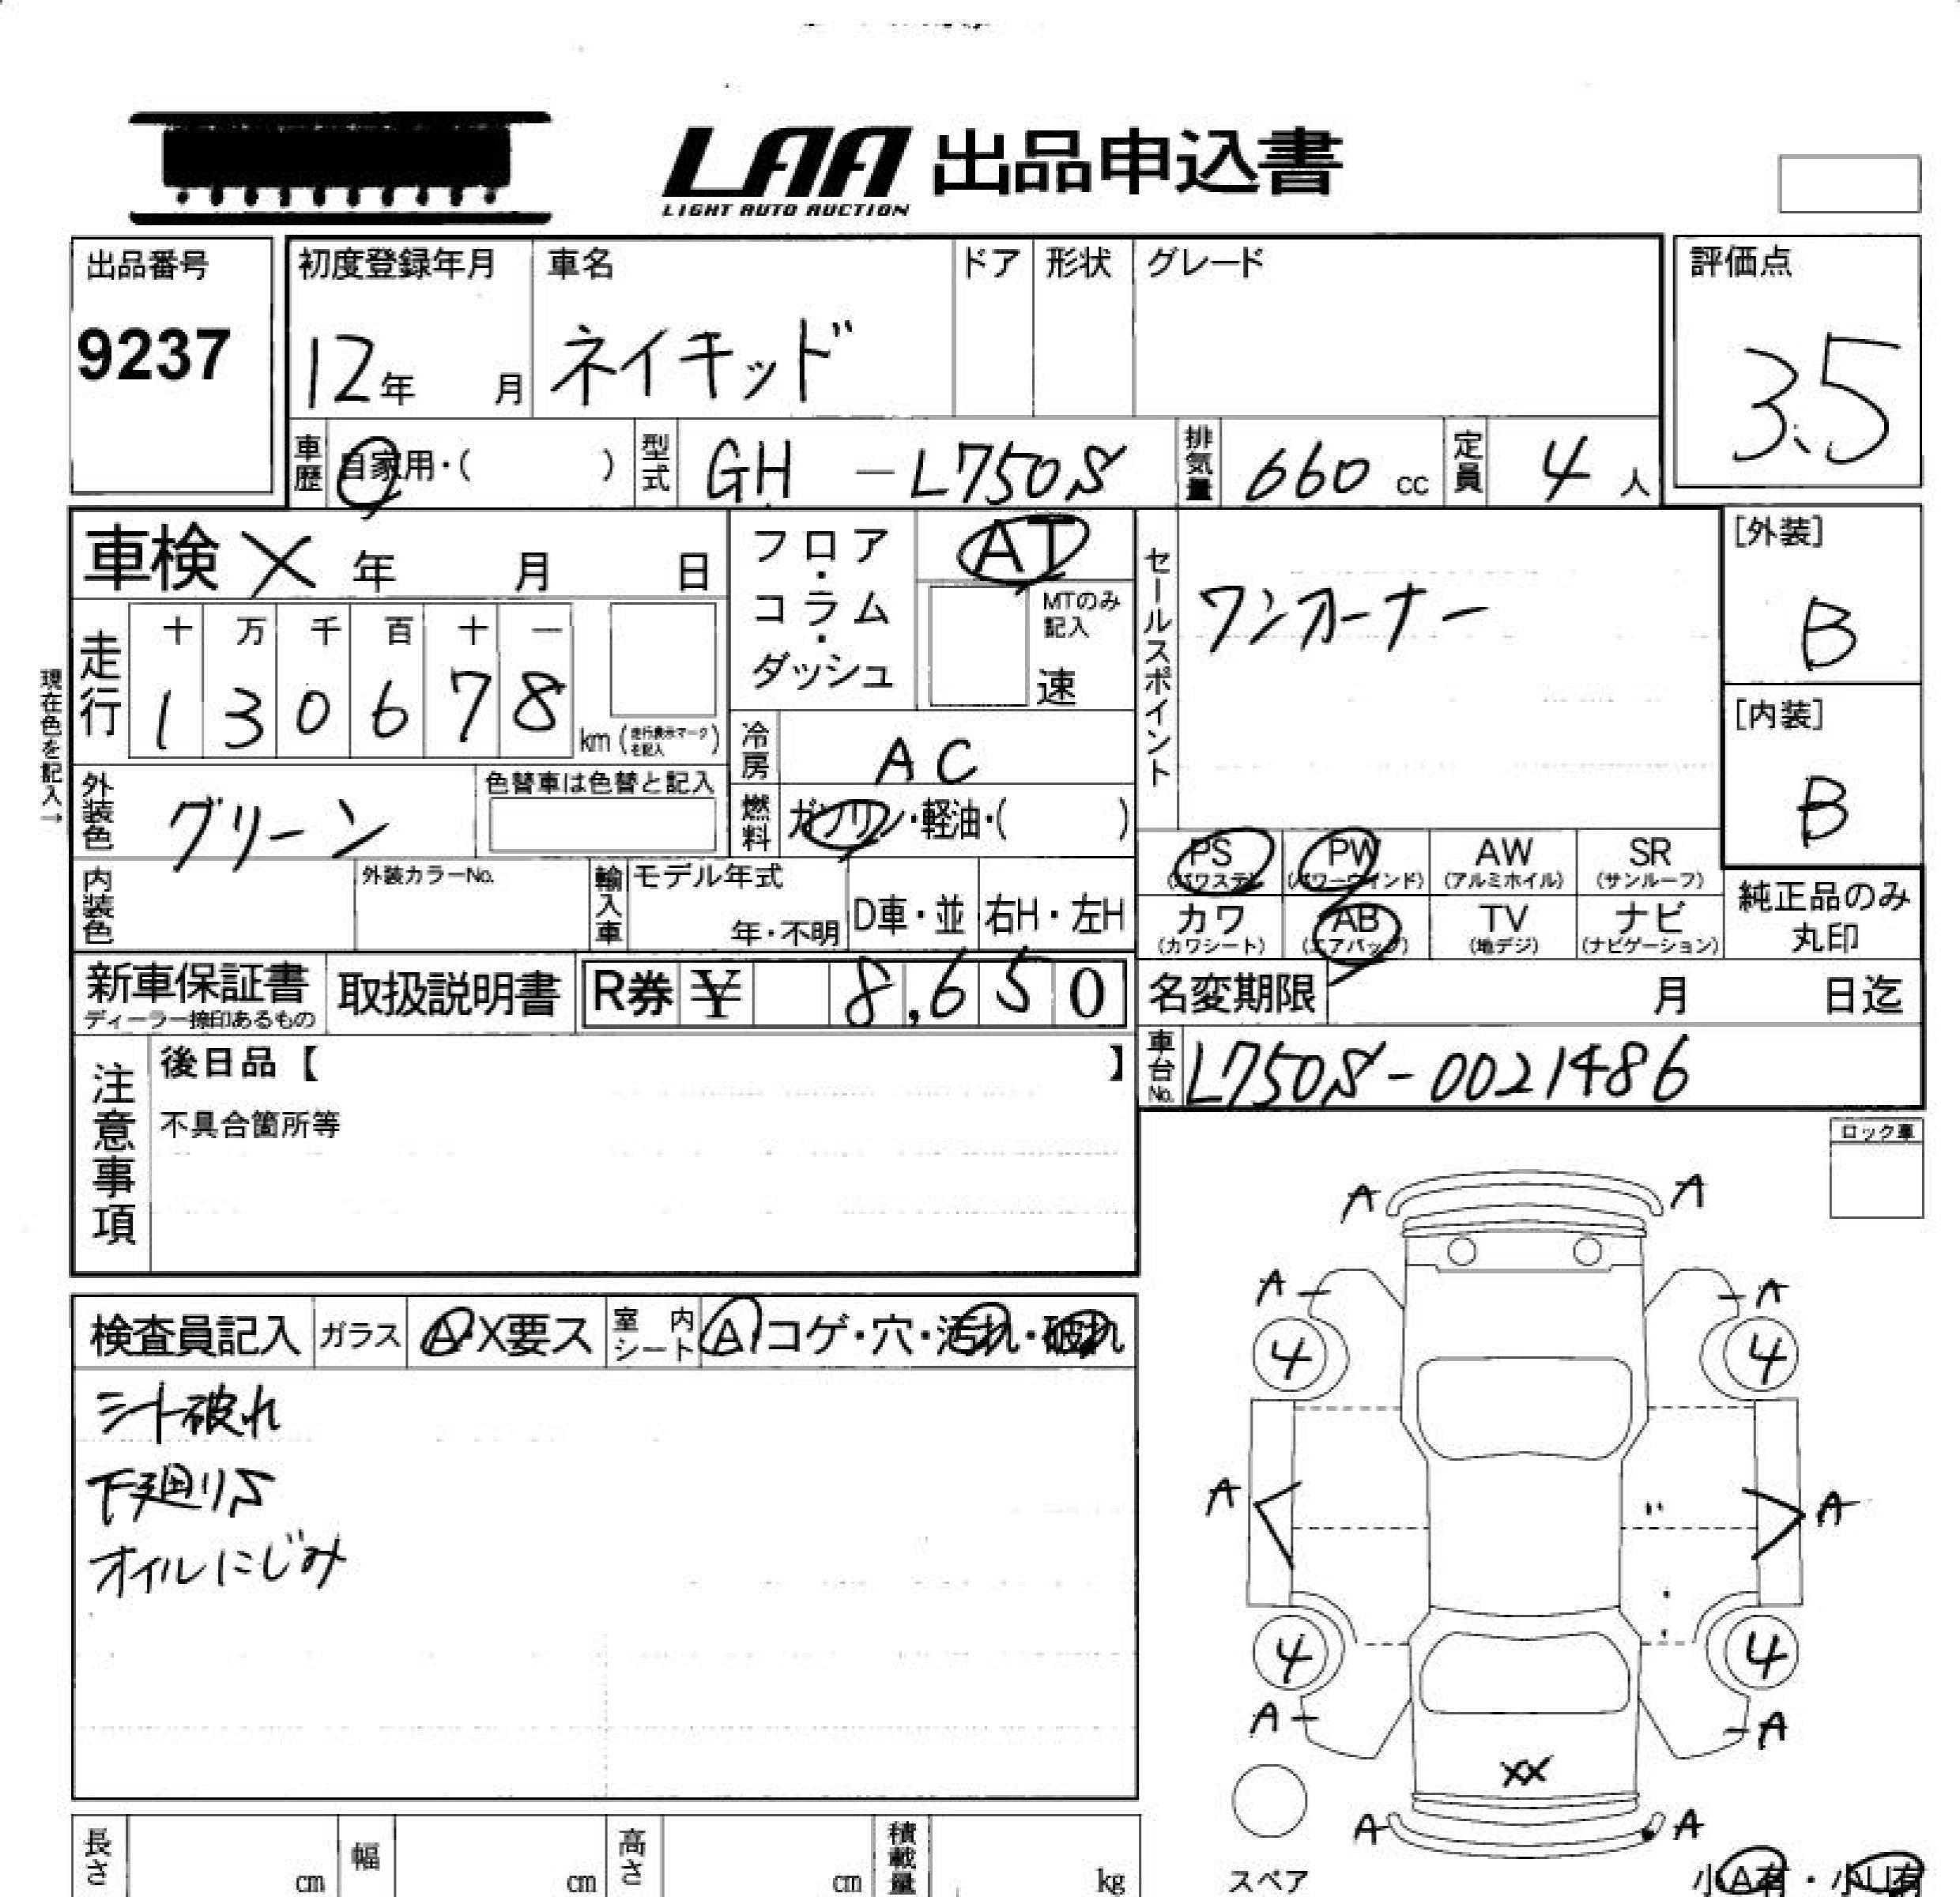 LAA 出品申込書
LIGHT AUTO AUCTION
出品番号
9237
初度登録年月
12年 月
車名
ネイキッド
ドア
形状
グレード
評価点
3.5
車歴 自家用・( )
型式 GH - L750S
排気量 660 cc
定員 4 人
車検 X 年 月 日
走行
十 万 千 百 十 一
1 3 0 6 7 8 km (走行表示マークを記入)
現在色を記入→
外装色 グリーン
色替車は色替と記入
内装色
外装カラーNo.
フロア・コラム・ダッシュ
AT
MTのみ記入
速
冷房 AC
燃料 ガソリン・軽油・( )
輸入車
モデル年式
年・不明
D車・並
右H・左H
セールスポイント
ワンオーナー
[外装]
B
[内装]
B
PS (パワステ)
PW (パワーウインド)
AW (アルミホイル)
SR (サンルーフ)
カワ (カワシート)
AB (エアバッグ)
TV (地デジ)
ナビ (ナビゲーション)
純正品のみ丸印
新車保証書
ディーラー捺印あるもの
取扱説明書
R券 ¥ 8,650
名変期限 月 日迄
車台No. L750S-0021486
注意事項
後日品【 】
不具合箇所等
ロック車
検査員記入
ガラス A・X要ス
室内シート A コゲ・穴・汚れ・破れ
シート破れ
下廻りS
オイルにじみ
A A
A A
4 4
A A
4 4
A A
XX
A A
スペア
小A有・小U有
長さ cm
幅 cm
高さ cm
積載量 kg